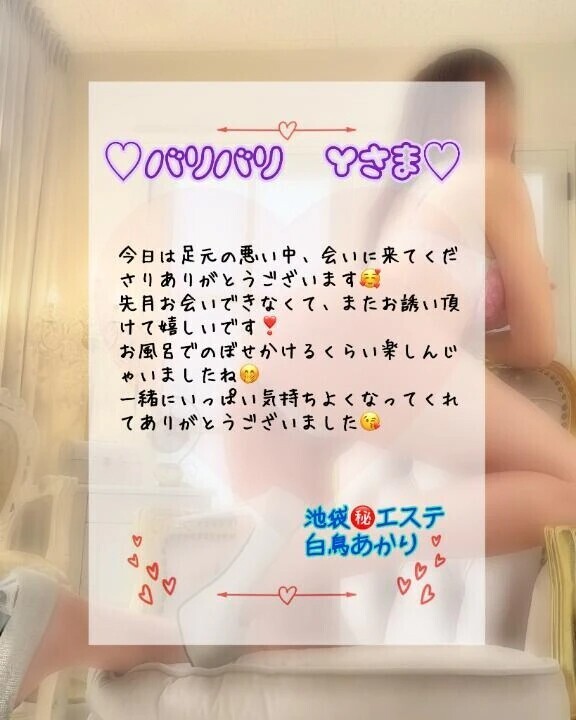 ♡バリバリ Yさま♡
今日は足元の悪い中、会いに来てくだ
さりありがとうございます🥰
先月お会いできなくて、またお誘い頂
けて嬉しいです❣️
お風呂でのぼせかけるくらい楽しんじ
ゃいましたね🤭
一緒にいっぱい気持ちよくなってくれ
てありがとうございました😘
池袋㊙️エステ
白鳥あかり